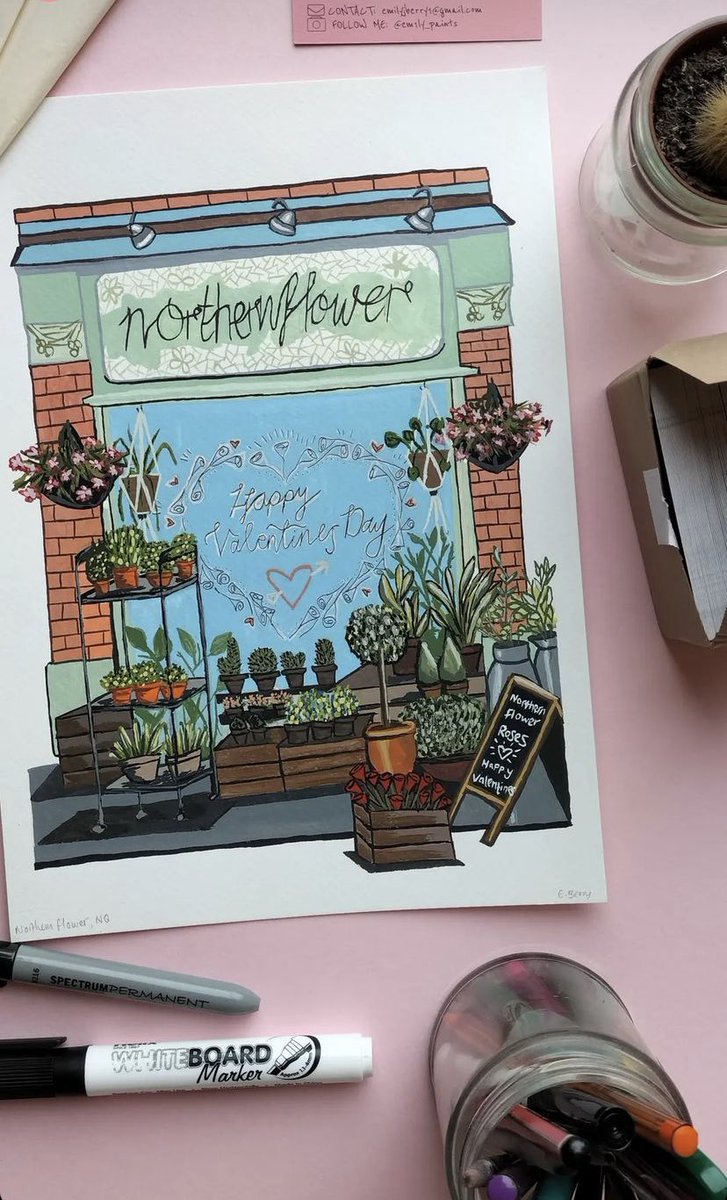 CONTACT: emilfberry1@gmail.com
FOLLOW ME: @em1ly_paints
northernflower
Happy
Valentines Day
Northern
Flower
Roses
Happy
Valentines
Northern flower, NQ
E.Berry
SPECTRUM PERMANENT
WHITEBOARD
Marker